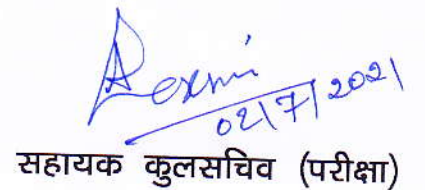 02/7/2021
सहायक कुलसचिव (परीक्षा)